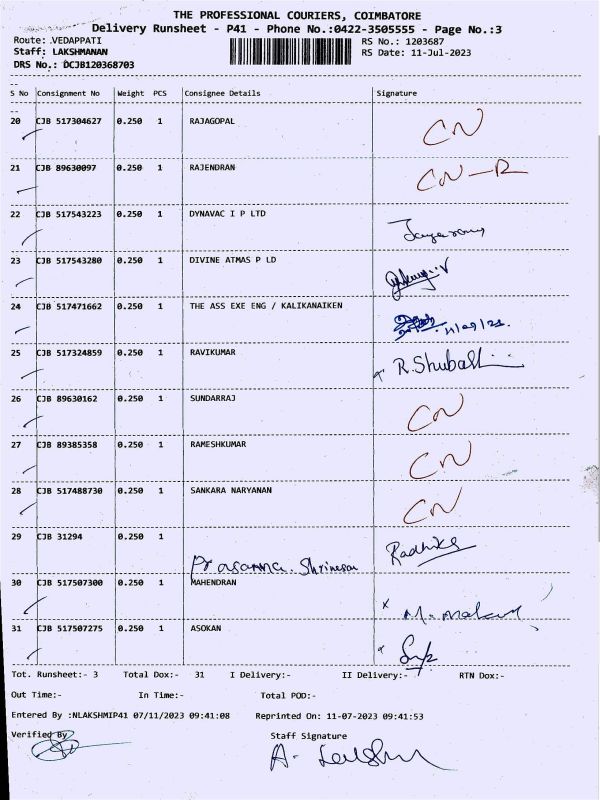 THE PROFESSIONAL COURIERS, COIMBATORE
Delivery Runsheet - P41 - Phone No.:0422-3505555 - Page No.:3
Route: .VEDAPPATI RS No.: 1203687
Staff: LAKSHMANAN RS Date: 11-Jul-2023
DRS No.: DCJB120368703
S No Consignment No Weight PCS Consignee Details Signature
20 CJB 517304627 0.250 1 RAJAGOPAL CN
21 CJB 89630097 0.250 1 RAJENDRAN CN-R
22 CJB 517543223 0.250 1 DYNAVAC I P LTD
23 CJB 517543280 0.250 1 DIVINE ATMAS P LD
24 CJB 517471662 0.250 1 THE ASS EXE ENG / KALIKANAIKEN
25 CJB 517324859 0.250 1 RAVIKUMAR R.Shubash
26 CJB 89630162 0.250 1 SUNDARRAJ CN
27 CJB 89385358 0.250 1 RAMESHKUMAR CN
28 CJB 517488730 0.250 1 SANKARA NARYANAN CN
29 CJB 31294 0.250 1 Radhika
Prasanna.
30 CJB 517507300 0.250 1 MAHENDRAN
31 CJB 517507275 0.250 1 ASOKAN
Tot. Runsheet:- 3 Total Dox:- 31 I Delivery:- II Delivery:- RTN Dox:-
Out Time:- In Time:- Total POD:-
Entered By :NLAKSHMIP41 07/11/2023 09:41:08 Reprinted On: 11-07-2023 09:41:53
Verified By Staff Signature